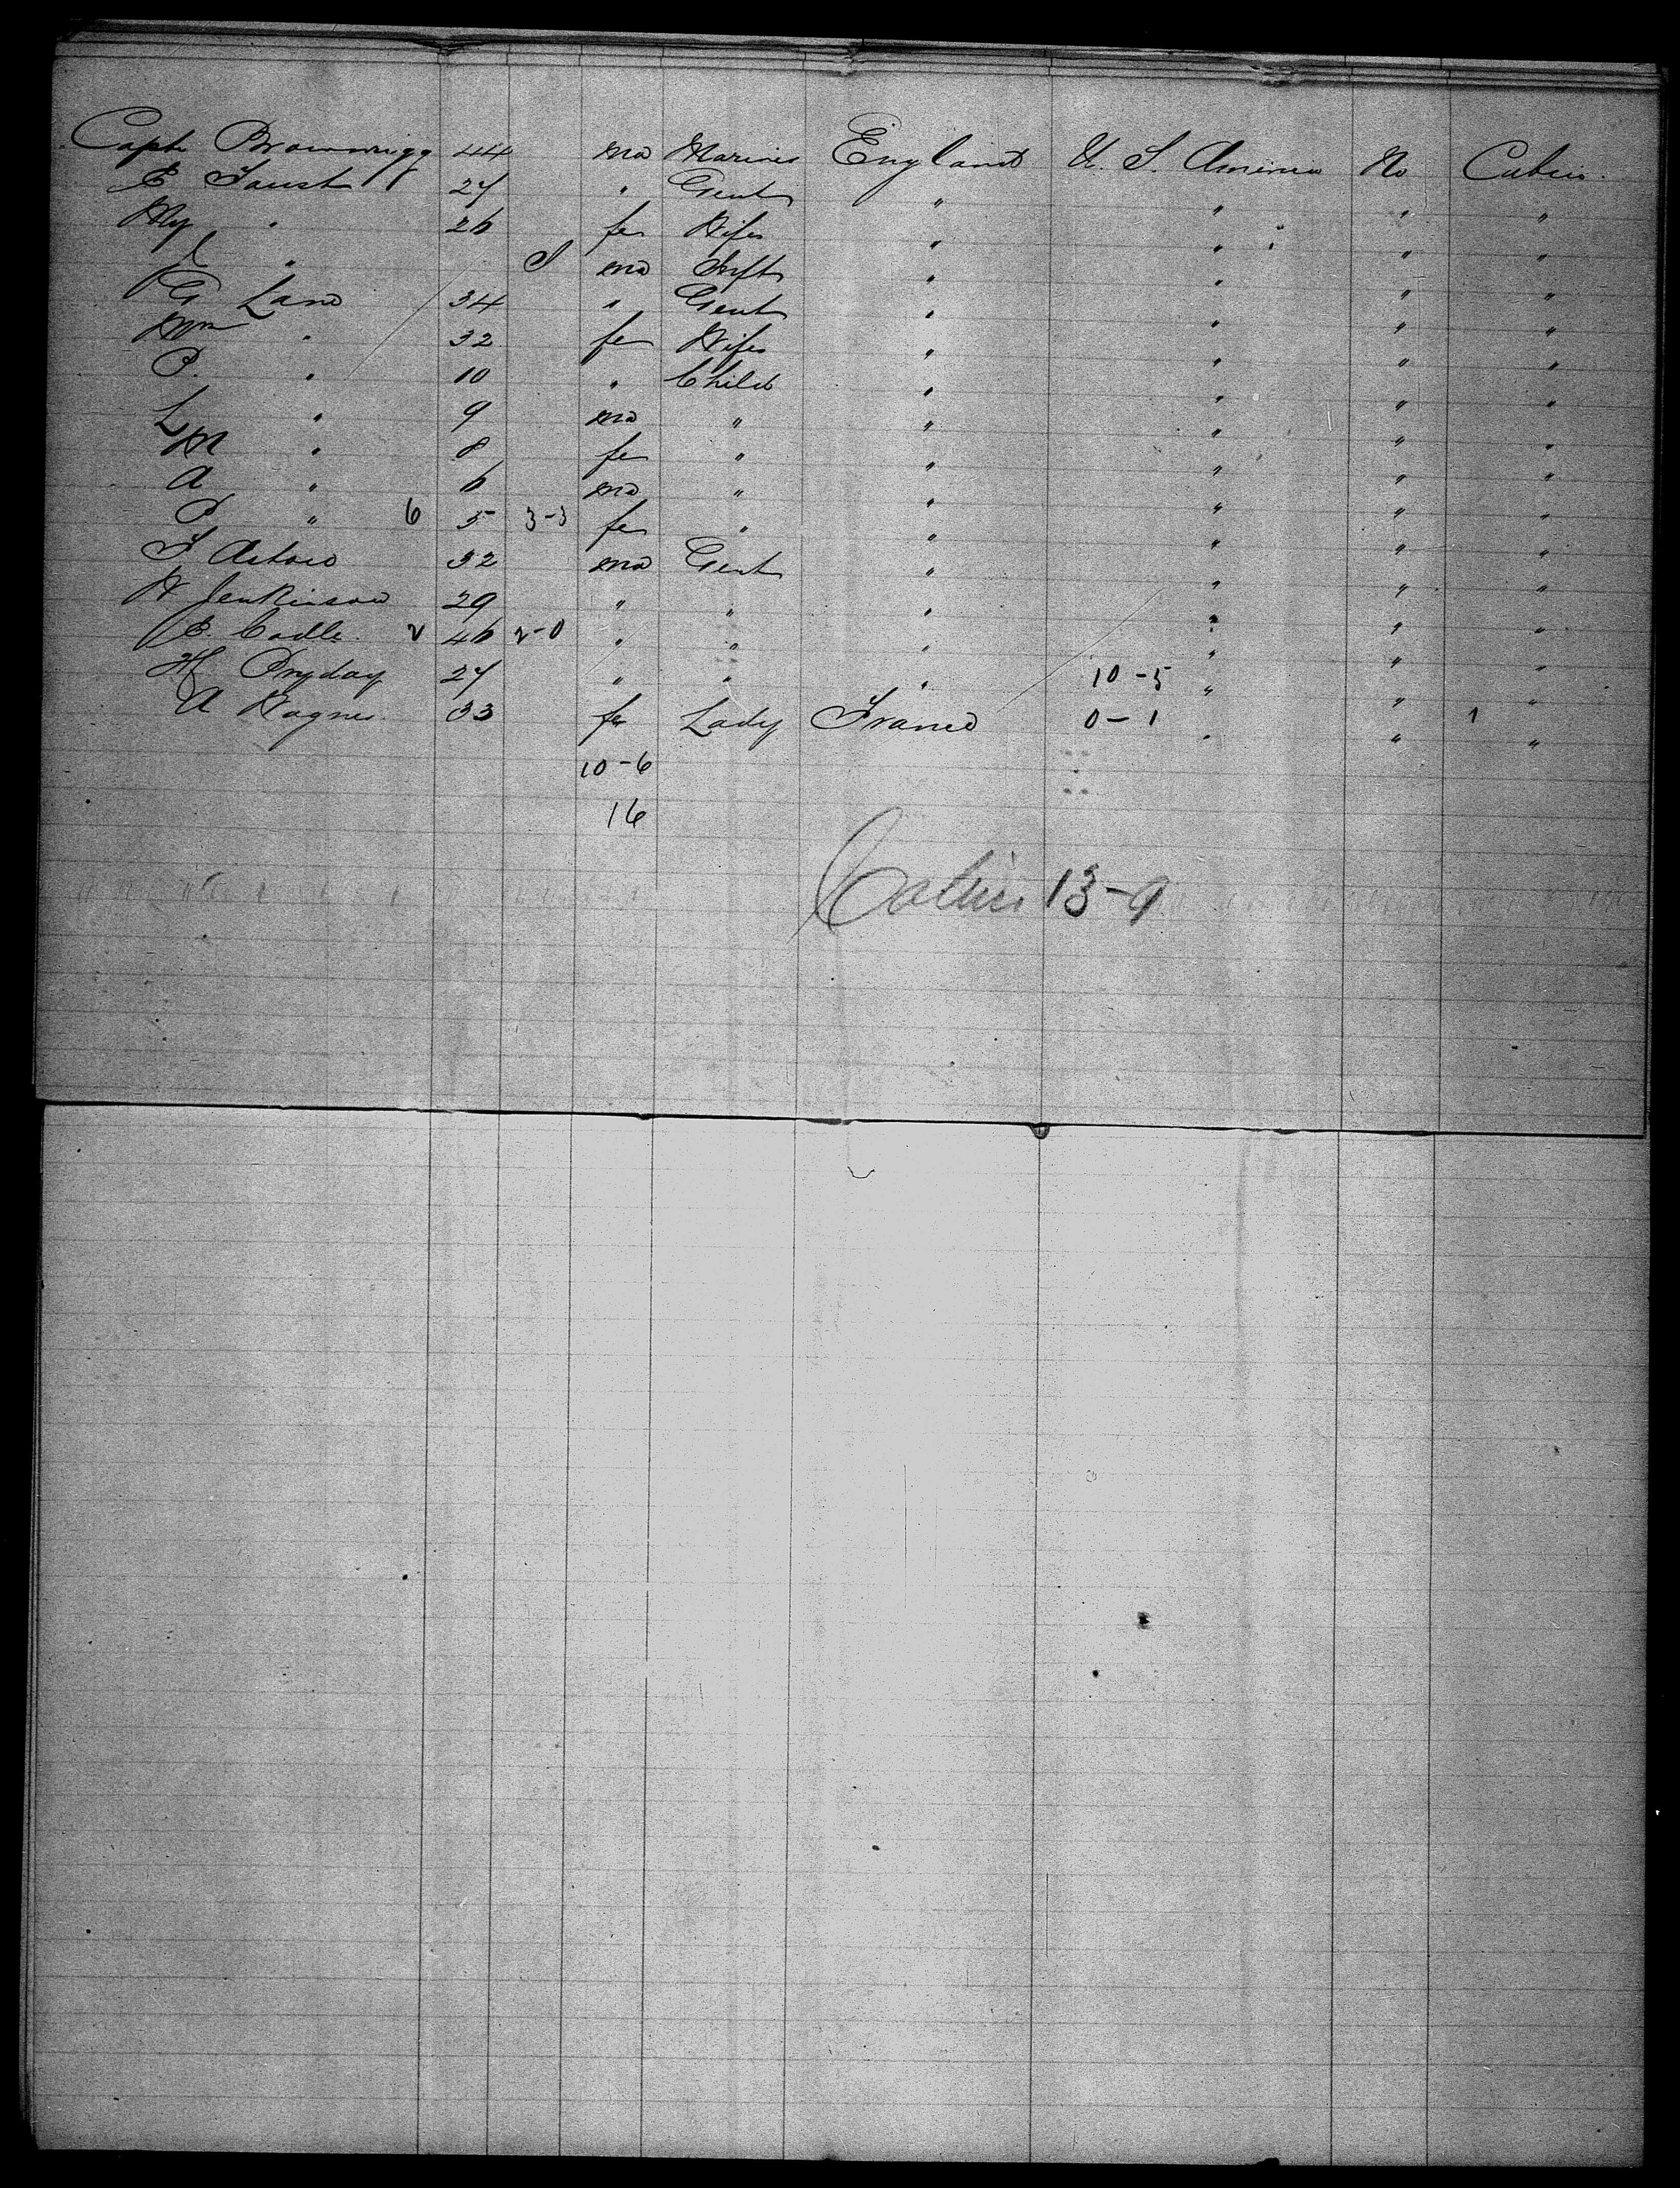 Capt Brownrigg 44 ma Marines England U. S. America No Cabin.
E Faust 27 " Gent " " " "
My " 26 fe Wife " " " "
J " 8 ma Inft " " " "
G Lane 34 " Gent " " " "
Mrs " 32 fe Wife " " " "
P. " 10 " Child " " " "
L " 9 ma " " " " "
M " 8 fe " " " " "
A " 6 ma " " " " "
P " 6 5 3-3 fe " " " " "
T 32 ma Gent " " " "
W Jenkinson 29 " " " " " "
E. Cadle. 2 46 2-0 " " " " " "
H Pryday 27 " " " 10-5 " " "
A Wagner 33 fe Lady France 0-1 " " 1 "
10-6
16
Cabin 13-9